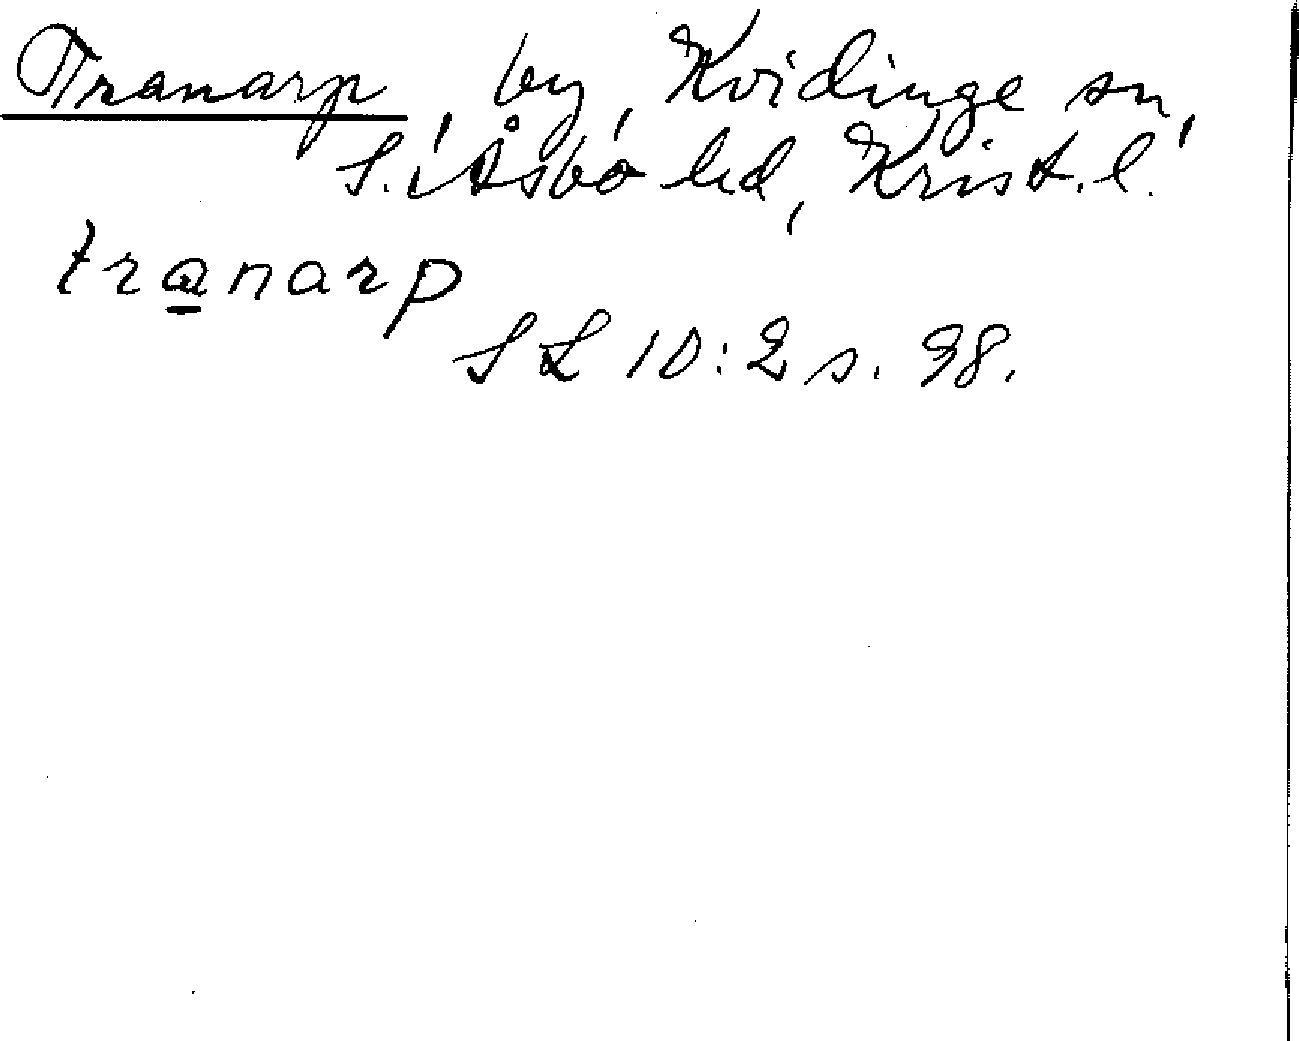 Tranarp, by, Kvidinge sn,
S. Åsbo hd, Krist. l.
tranarp
SL 10:2 s. 98.